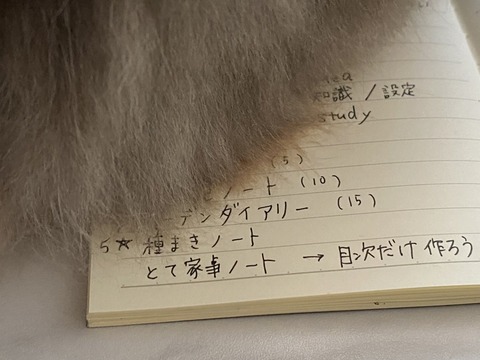 知識 / 設定
study
(5)
ノート (10)
デンダイアリー (15)
5☆ 種まきノート
とて家事ノート → 目次だけ作ろう